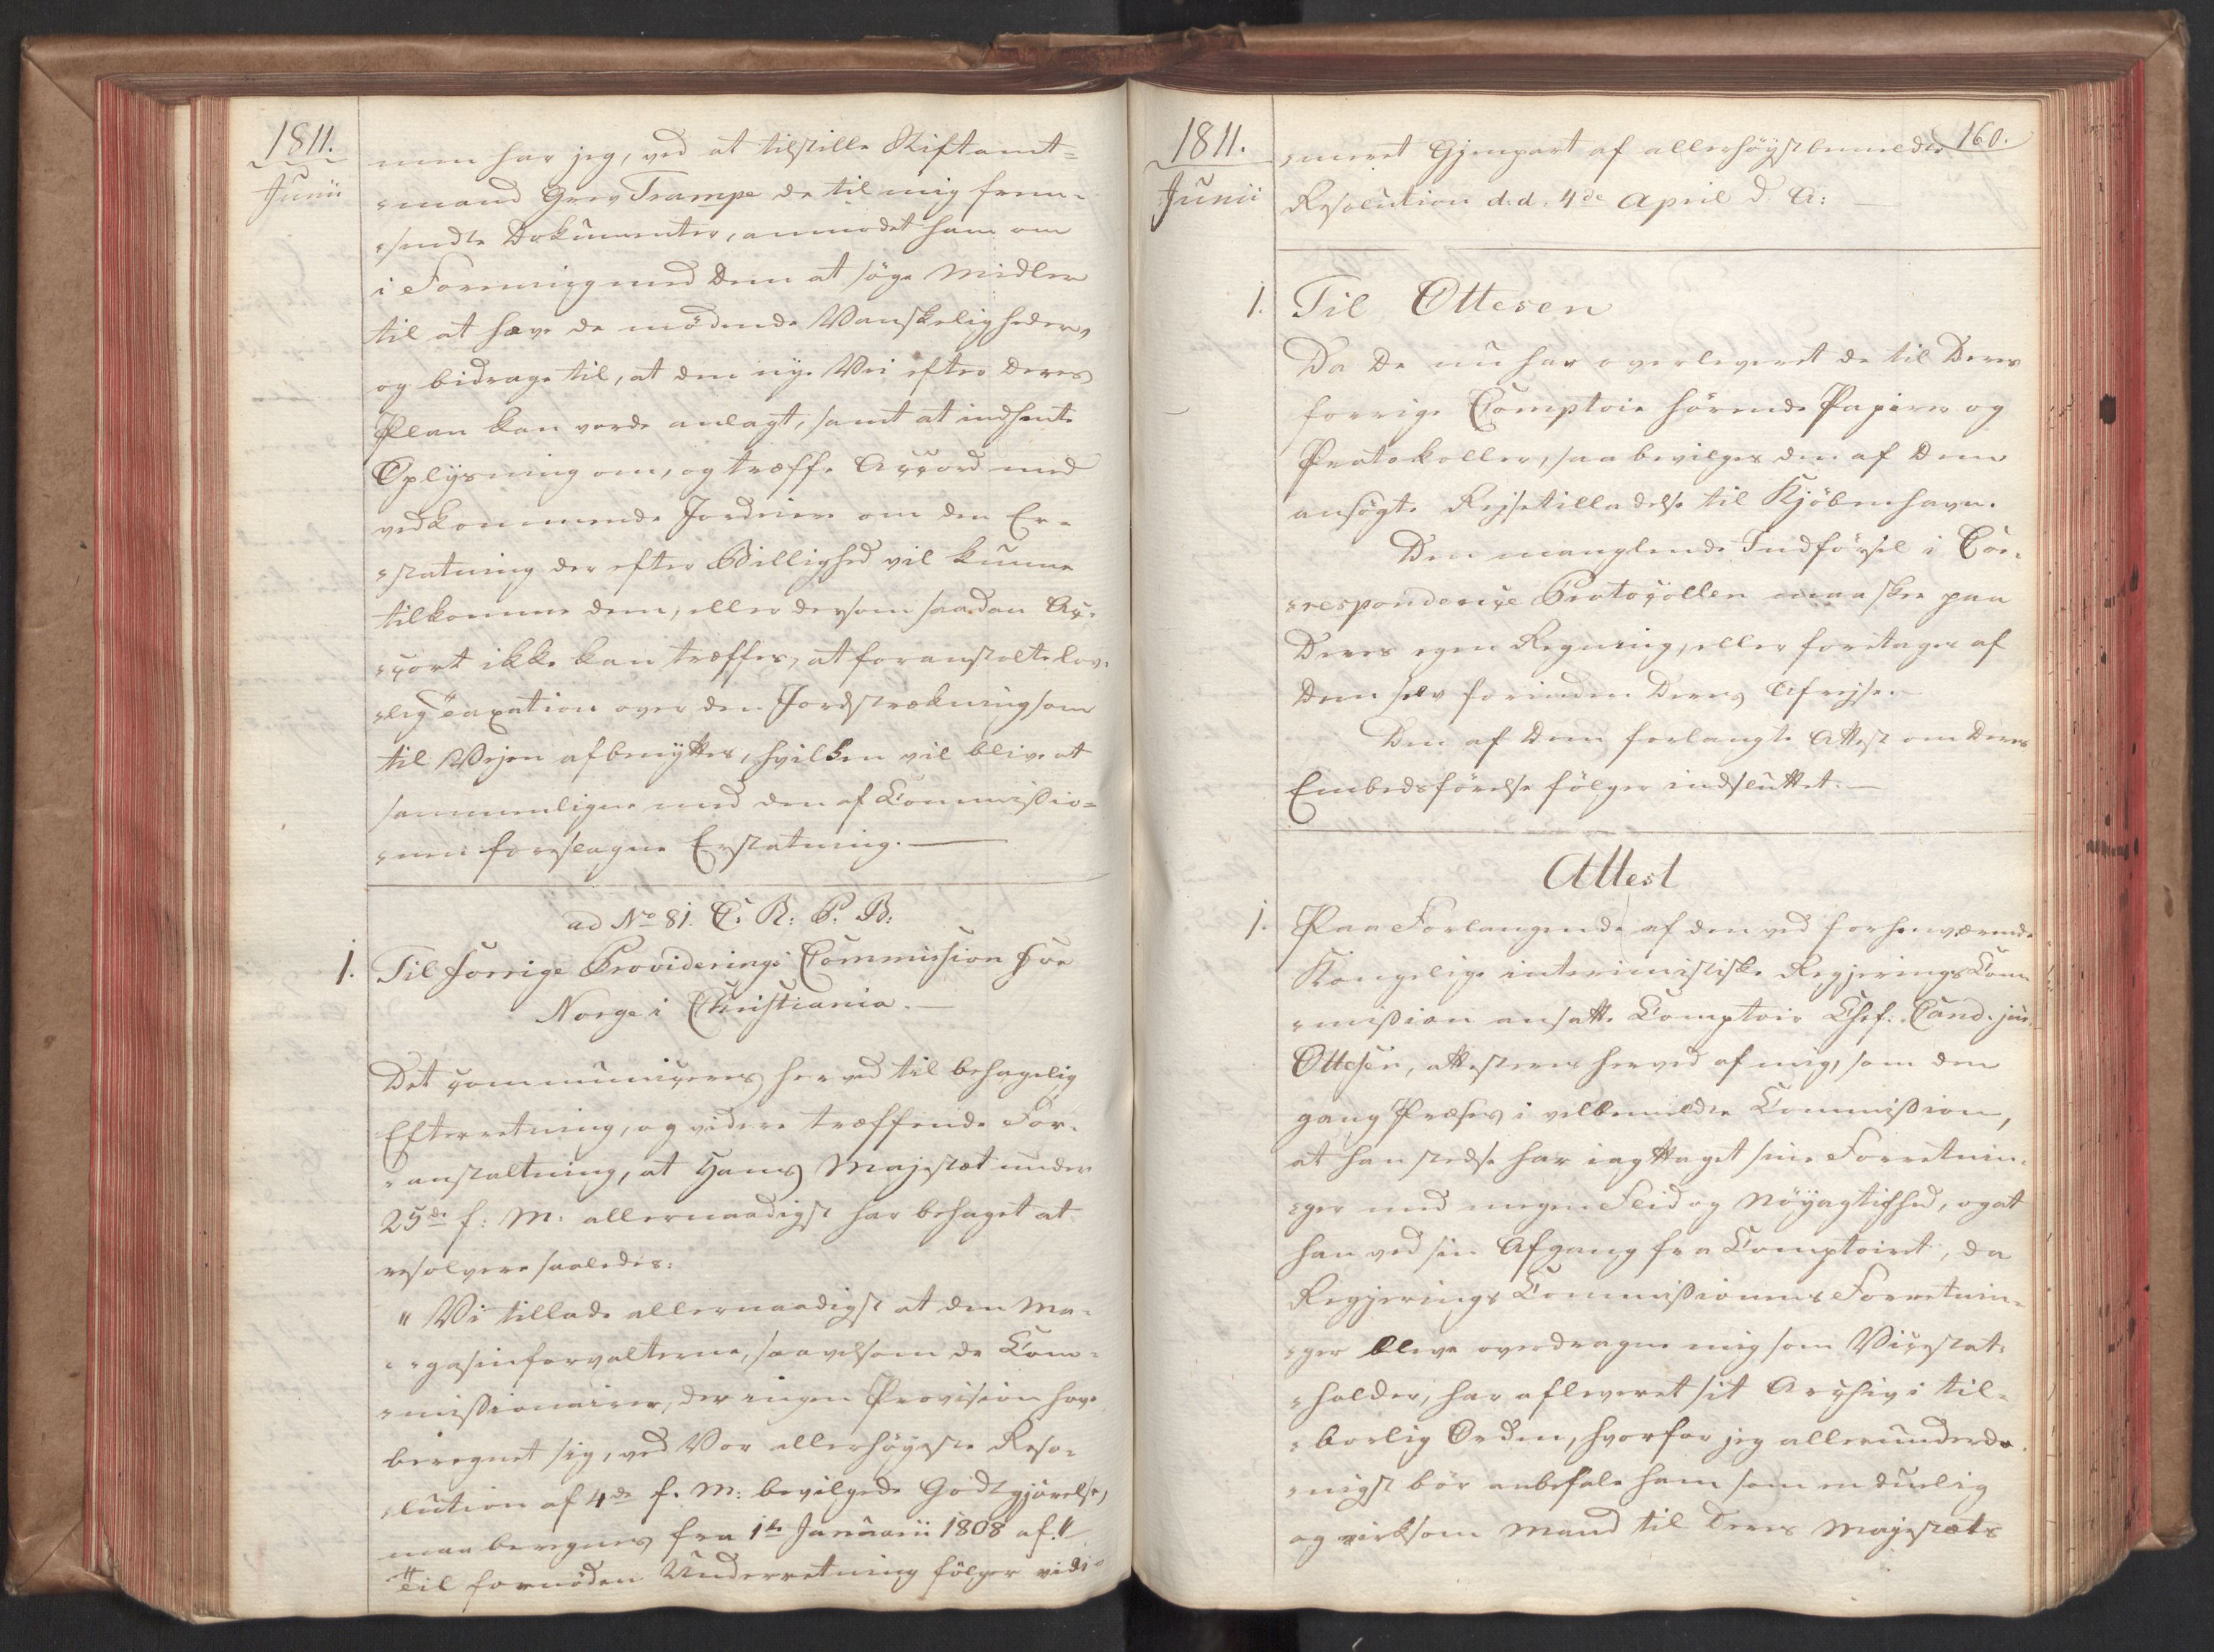 1811.
Junii
men har jeg, ved at tilstille Stiftamt=
=mand Grev Trampe de til mig frem=
=sendte Dokumenter, anmodet ham om
i Forening med Dem at söge Midler
til at hæve de mödende Vanskeligheder,
og bidrage til, at den nye Vei efter Deres
Plan kan vorde anlagt, samt at indhente
Oplysning om, og træffe Accord med
vedkommende Jordeiere om den Er=
=statning der efter Billighed vil kunne
tilkomme dem, eller dersom saadan Ac=
=cort ikke kan træffes, at foranstalte lov=
=lig Taxation over den Jordstrækning som
til Vejen afbenyttes, hvilken vil blive at
sammenligne med den af Commissio=
=nen foreslagne Erstatning.
ad No 81. C. R: P. B:
1. Til forrige Providerings Commission for
Norge i Christiania.
Det communiceres herved til behagelig
Efterretning, og videre træffende For=
=anstaltning, at Hans Majestæt under
25de f: M: allernaadigst har behaget at
resolvere saaledes:
" Vi tillade allernaadigst at den Ma=
=gasinforvalterne, saavelsom de Com=
=missionairer, der ingen Provision have
beregnet sig, ved Vor allerhöyeste Reso=
=lution af 4de f. M: bevilgede Godtgjörelse,
maa beregnes fra 1te Januarii 1808 af."
Til fornöden Underretning fölger vidi=
1811.
Junii
160.
=meret Gjenpart af allerhöystbemeldte
Resolution d. d. 4de April d. A:
1. Til Ottesen
Da De nu har overleveret de til Deres
forrige Comptoir hörende Papirer og
Protokoller, saa bevilges den af Dem
ansögte Rejsetilladelse til Kjöbenhavn.
Den manglende Indförsel i Cor=
=respondence Protocollen maa skee paa
Deres egen Regning, eller foretages af
Dem selv forinden Deres Afrejse.
Den af Dem forlangte Attest om Deres
Embedsförelse fölger indsluttet.
Attest
1. Paa Forlangende af den ved forhenværende
Kongelige interimistiske Regjerings Com
=mission ansatte Comptoir Chef: Cand. jur.
Ottesen, attesteres herved af mig, som den
gang Præses i velbemeldte Commission,
at han stedse har iagttaget sine Forretnin=
=ger med megen Fliid og Nöyagtighed, og at
han ved sin Afgang fra Comptoiret, da
Regjerings Commissionens Forretnin=
=ger bleve overdragne mig som Vicestat=
=holder, har afleveret sit Archiv i til=
=börlig Orden, hvorfor jeg allerunderda=
=nigst bör anbefale ham som en duelig
og virksom Mand til Deres Majestæts